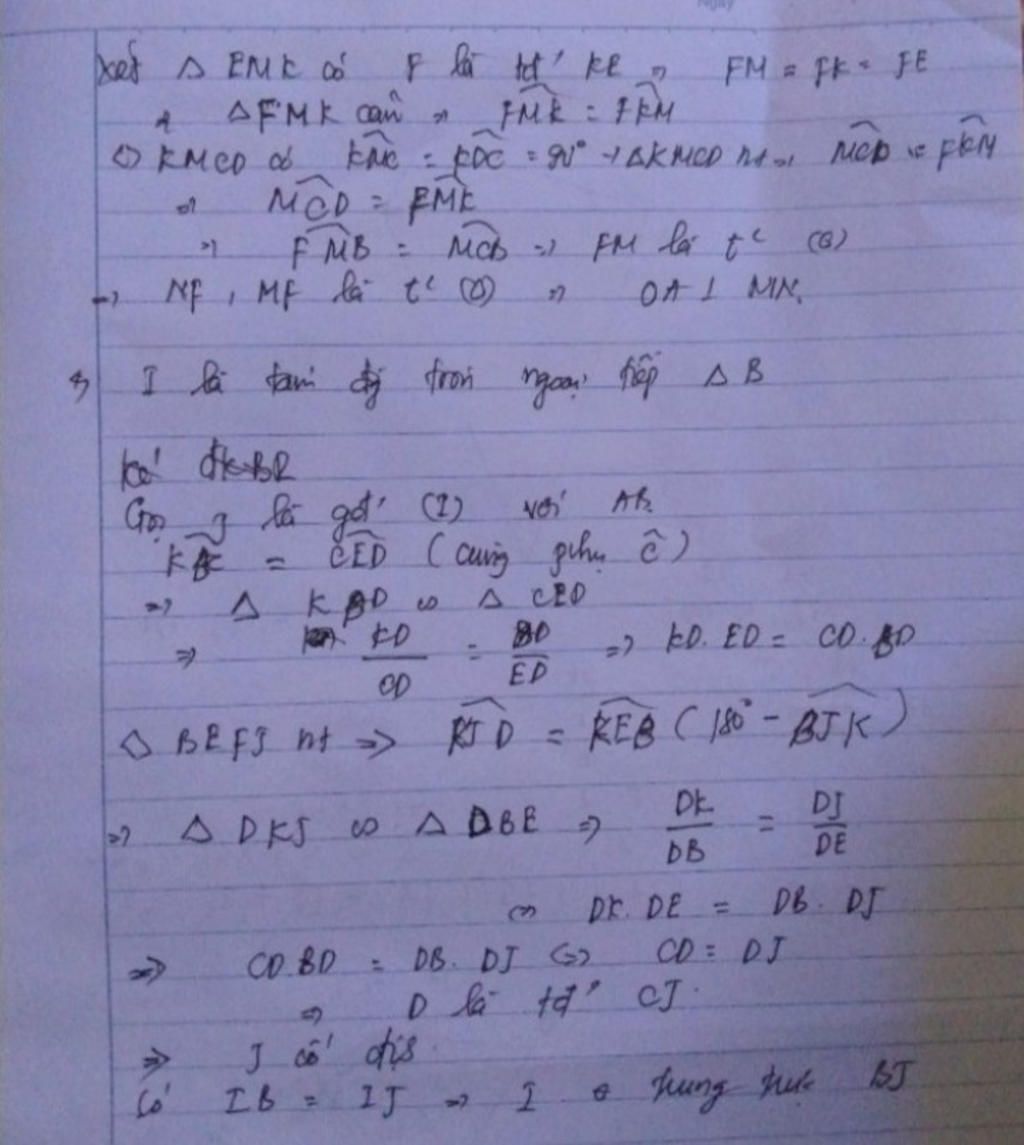 Xét △ EMK có F là tđ' KE ⇒ FM = FK = FE
⇒ △FMK cân ⇒ \widehat{FMK} = \widehat{FKM}
◇ KMCD có \widehat{KMC} = \widehat{KDC} = 90° → ◇KMCD nt ⇒ \widehat{MCD} = \widehat{FKM}
⇒ \widehat{MCD} = \widehat{FMK}
⇒ \widehat{FMB} = \widehat{MCB} ⇒ FM là t² (O)
→ NF, MF là t² (O) ⇒ OA ⊥ MN.
I là tâm đg tròn ngoại tiếp △ B
Kẻ BR
Gọi J là gđ' (I) với AB
= \widehat{CED} (cùng phụ \widehat{C})
⇒ △ KBD ∽ △ CED
⇒ \frac{KD}{CD} = \frac{BD}{ED} ⇒ KD. ED = CD. BD
◇ BEFJ nt ⇒ \widehat{KJD} = \widehat{KEB} (180° - \widehat{BJK})
⇒ △ DKJ ∽ △ DBE ⇒ \frac{DK}{DB} = \frac{DJ}{DE}
⇔ DK. DE = DB. DJ
⇒ CD.BD = DB. DJ ⇔ CD = DJ
⇒ D là tđ' CJ.
⇒ J cố địh.
Có IB = IJ ⇒ I ∈ trung trực BJ